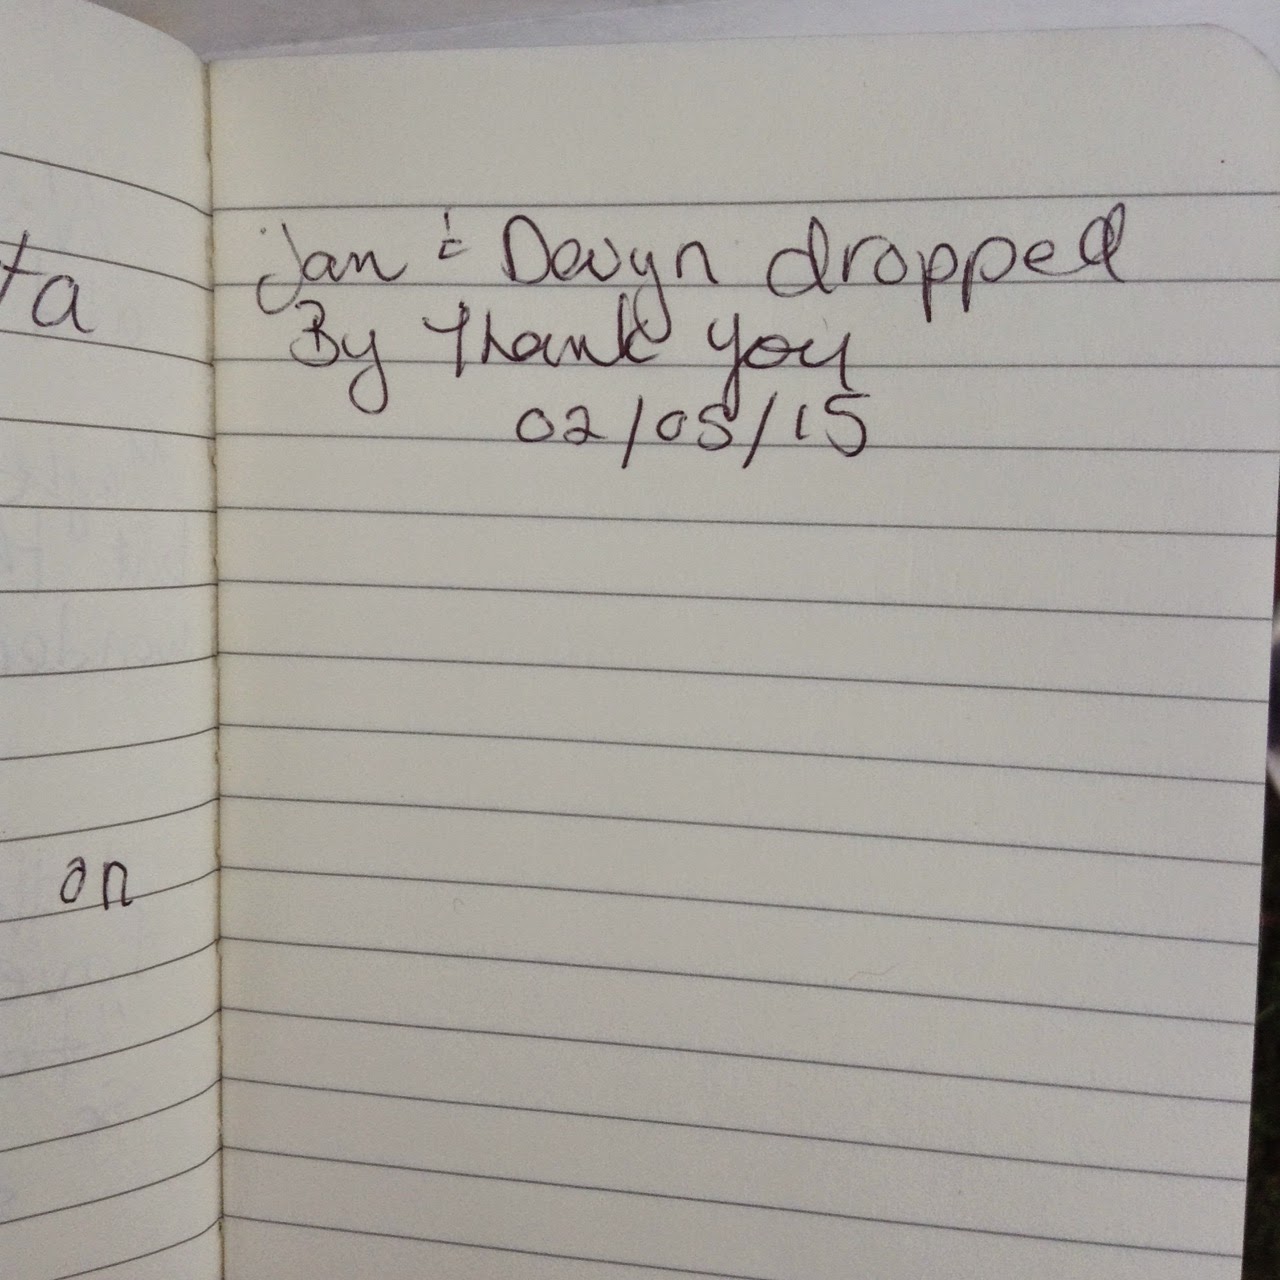 ta
on
Jan & Devyn dropped
By Thank you
02/05/15